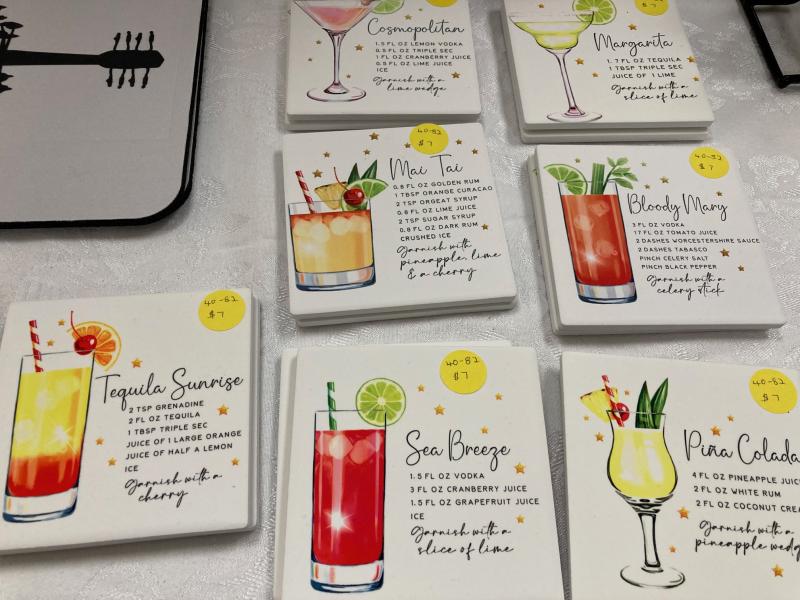 Cosmopolitan
1.5 FL OZ LEMON VODKA
0.5 FL OZ TRIPLE SEC
1 FL OZ CRANBERRY JUICE
0.5 FL OZ LIME JUICE
ICE
Garnish with a
lime wedge
$7
Margarita
1.7 FL OZ TEQUILA
1 TBSP TRIPLE SEC
JUICE OF 1 LIME
Garnish with a
slice of lime
40-82
$7
Mai Tai
0.8 FL OZ GOLDEN RUM
1 TBSP ORANGE CURACAO
2 TSP ORGEAT SYRUP
0.8 FL OZ LIME JUICE
2 TSP SUGAR SYRUP
0.8 FL OZ DARK RUM
CRUSHED ICE
Garnish with
pineapple, lime
& a cherry
40-82
$7
Bloody Mary
3 FL OZ VODKA
17 FL OZ TOMATO JUICE
2 DASHES WORCESTERSHIRE SAUCE
2 DASHES TABASCO
PINCH CELERY SALT
PINCH BLACK PEPPER
Garnish with a
celery stick
40-82
$7
Tequila Sunrise
2 TSP GRENADINE
2 FL OZ TEQUILA
1 TBSP TRIPLE SEC
JUICE OF 1 LARGE ORANGE
JUICE OF HALF A LEMON
ICE
Garnish with a
cherry
40-82
$7
Sea Breeze
1.5 FL OZ VODKA
3 FL OZ CRANBERRY JUICE
1.5 FL OZ GRAPEFRUIT JUICE
ICE
Garnish with a
slice of lime
40-82
$7
Piña Colada
4 FL OZ PINEAPPLE JUIC
2 FL OZ WHITE RUM
2 FL OZ COCONUT CREA
Garnish with a
pineapple wedge